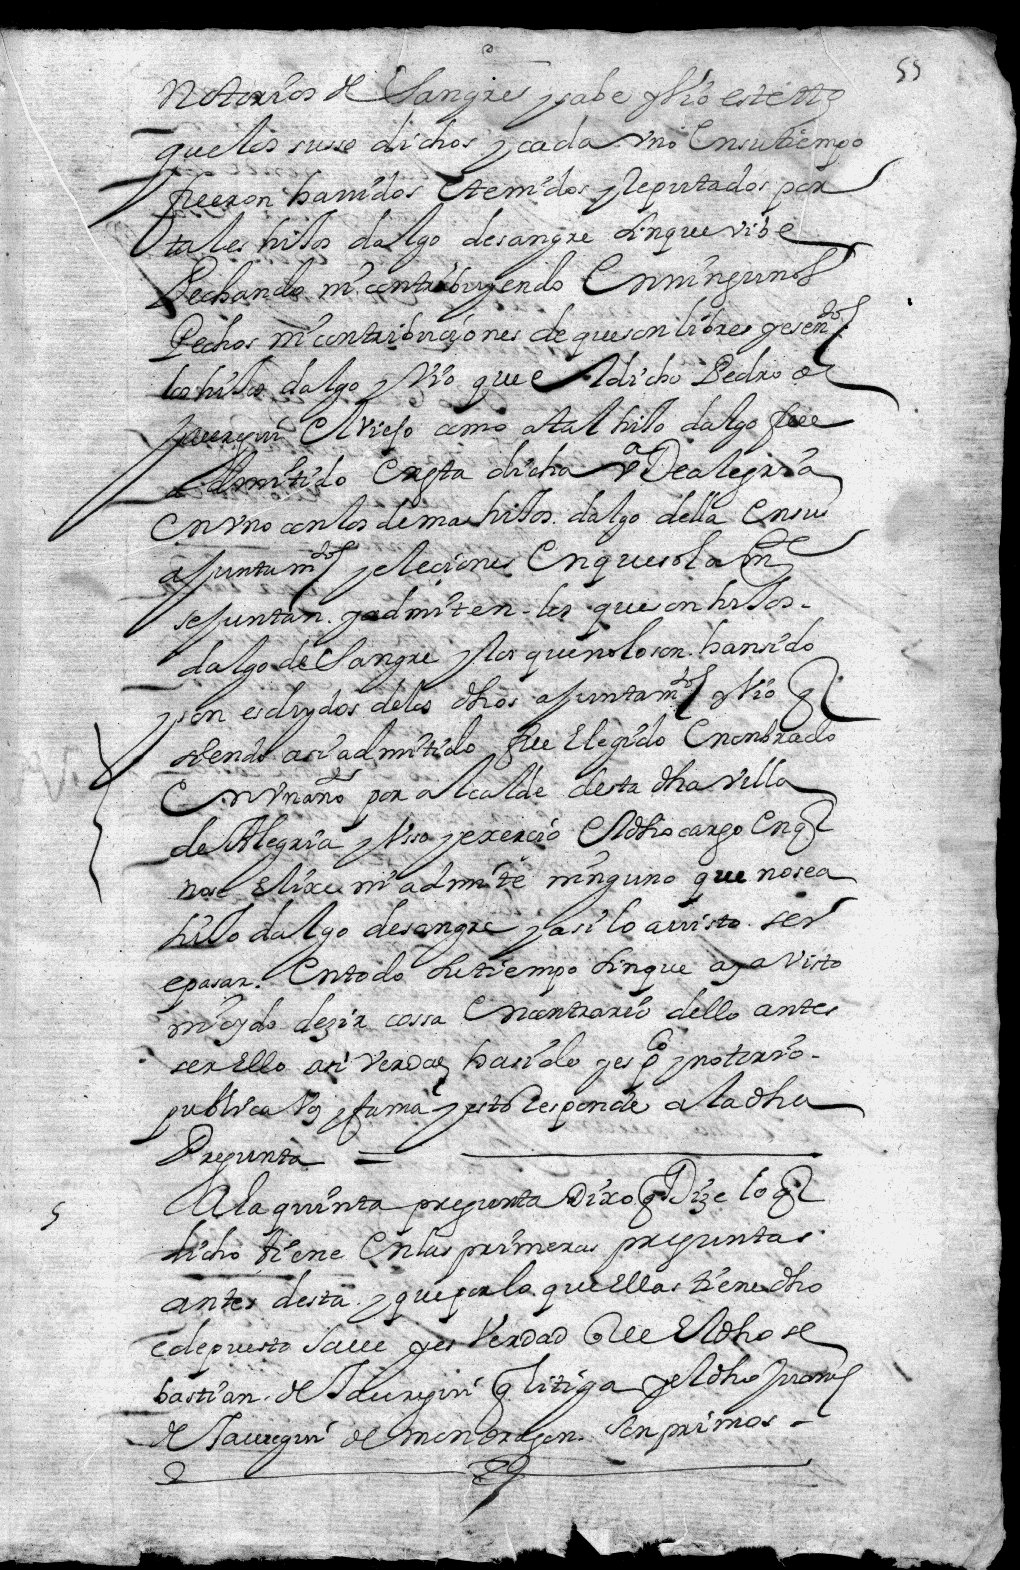 55
Notorios de Sangre y sabe y vio este tto
que los susso dichos y cada vno en su tiempo
fueron hauidos e tenidos y Reputados por
tales hijos dalgo de sangre sin que vibe
Pechando ni contribuyendo en ningunos
Pechos ni contribuciones de que son libres y esentos
los hijos dalgo y vio que el dicho Pedro de
Jauregui el viejo como a tal hijo dalgo fue
Admitido en esta dicha va De alegria
en vno con los demas hijos dalgo della en sus
ajuntamtos y eleciones en que sola mte
se juntan y admiten los que son hijos
dalgo de Sangre y los que no lo son han sido
y son escluydos de los dhos ajuntamtos y vio q
siendo asi admitido fue elegido e nonbrado
en vn año por alcalde desta dha villa
de Alegria y vsso y exercio el dho cargo en q
no se elixe ni admite ninguno que no sea
hijo dalgo de sangre y asi lo a uisto ser
e pasar en todo su tiempo sin que aya visto
ni oydo dezir cossa en contrario dello antes
ser ello asi verdad ha sido y es pco y notorio
publica voz y fama y esto Responde a la dha
Pregunta =
5
A la quinta pregunta Dixo q Dize lo q
dicho tiene en las primeras preguntas
antes desta y que por lo que ellas tiene dho
e depuesto saue y es verdad que el dho se
bastian de Jauregui q litiga y el dho Juanes
de Jauregui de mondragon son primos